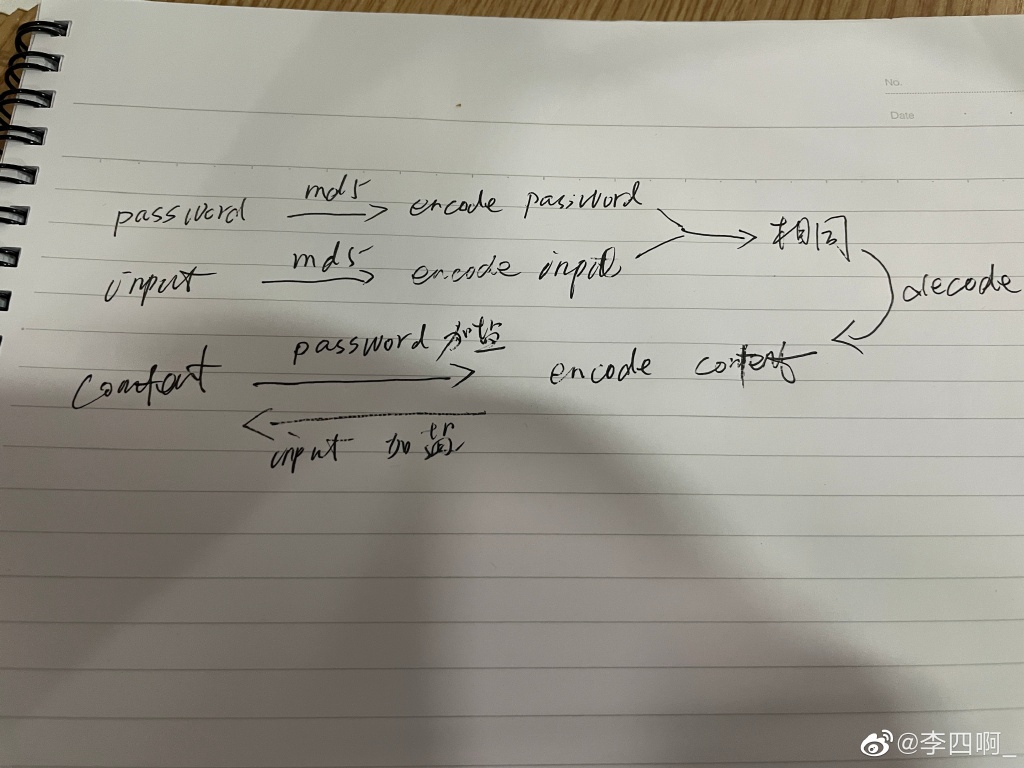 No.
Date
password md5 encode password
input md5 encode input
相同
decode
password 加盐
Content encode content
input 加盐
@李四啊_